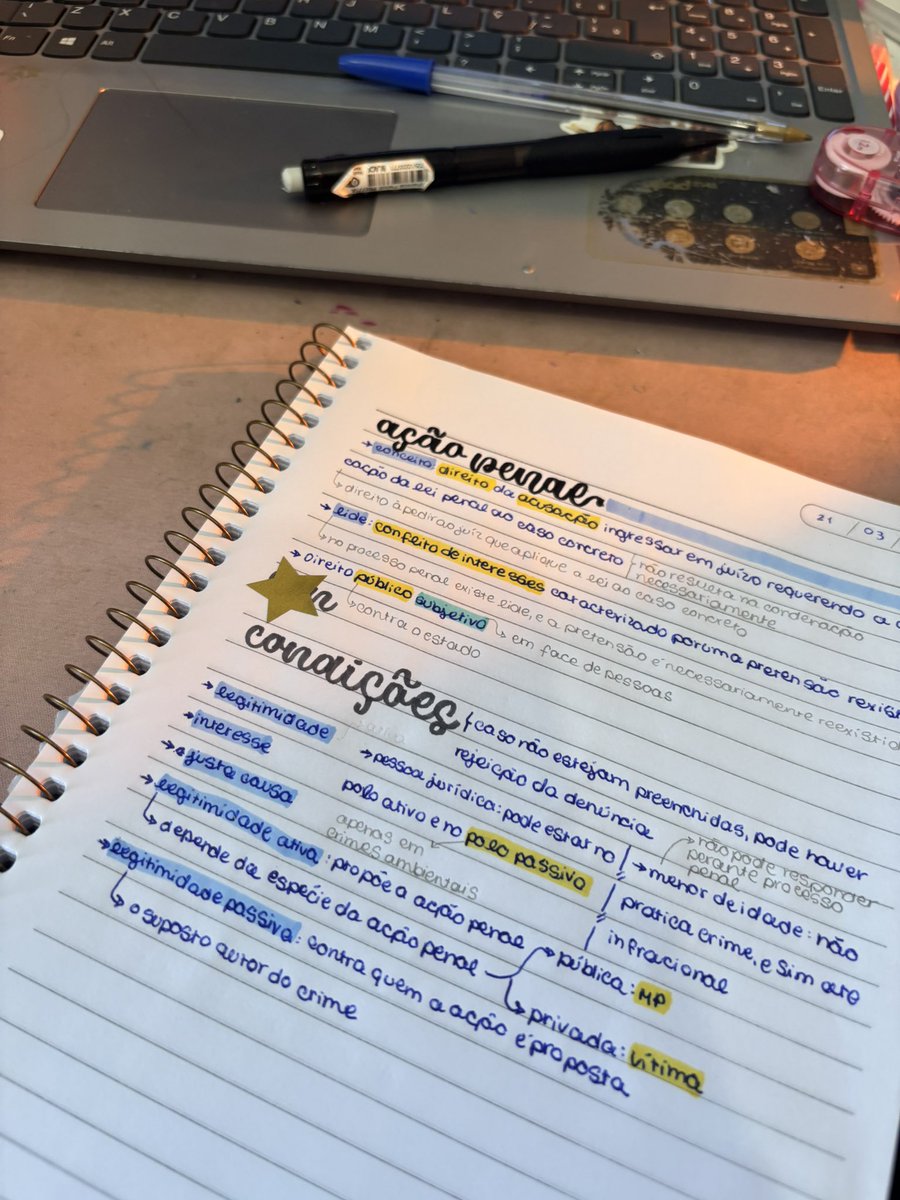 ação penal
21 / 03 /
→ conceito direito da acusação ingressar em juízo requerendo a
cação da lei penal ao caso concreto
não resulta na condenação
necessariamente
↳ direito à pedir ao juiz que aplique a lei ao caso concreto
→ lide: conflito de interesses caracterizado por uma pretensão
↳ no processo penal existe lide, e a pretensão é necessariamente
→ Direito público subjetivo → em face de pessoas
↳ contra o estado
condições
caso não estejam preenchidas, pode haver
rejeição da denúncia
→ legitimidade
→ interesse
→ justa causa
→ pessoa jurídica: pode estar no
polo ativo e no polo passivo
apenas em
crimes ambientais
→ não pode responder
perante processo
penal
→ menor de idade: não
pratica crime, e sim ato
infracional
→ legitimidade ativa: propõe a ação penal
↳ depende da espécie da ação penal
→ pública: MP
↳ privada: vítima
→ legitimidade passiva: contra quem a ação é proposta
↳ o suposto autor do crime
Fn
Alt
Z
X
C
V
B
N
M
Enter